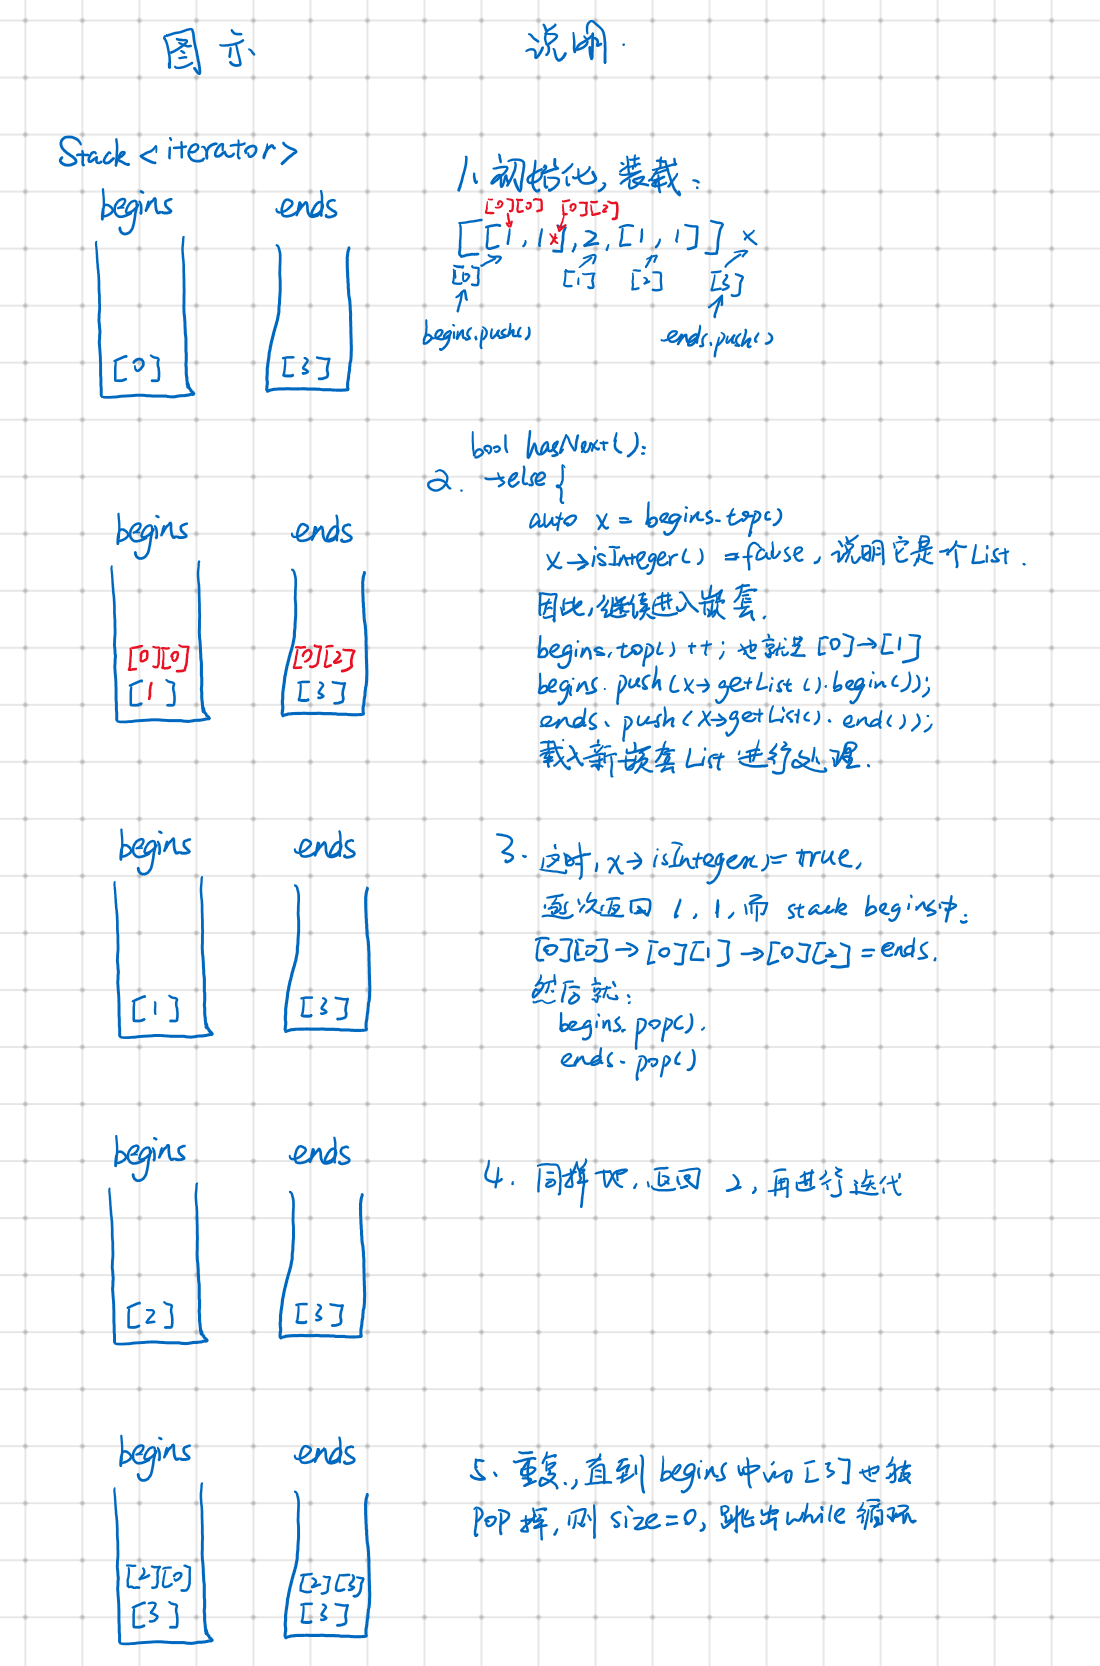 图示
说明.
Stack <iterator>
begins
ends
[0]
[3]
1. 初始化, 装载:
[0][0]
[0][2]
[[1, 1x], 2, [1, 1]] x
[0]
[1]
[2]
[3]
begins.push()
ends.push()
bool hasNext():
2. →else {
auto x = begins.top()
x→isInteger() = false, 说明它是个List.
因此, 继续进入嵌套.
begins.top()++; 也就是 [0]→[1]
begins.push(x→getList().begin());
ends.push(x→getList().end());
载入新嵌套List进行处理.
begins
ends
[0][0]
[1]
[0][2]
[3]
begins
ends
[1]
[3]
3. 这时, x→isInteger()=true,
逐次返回 1, 1, 而 stack begins中:
[0][0]→[0][1]→[0][2]=ends.
然后就:
begins.pop().
ends.pop()
begins
ends
[2]
[3]
4. 同样地, 返回 2, 再进行迭代
begins
ends
[2][0]
[3]
[2][3]
[3]
5. 重复, 直到begins中的[3]也被
pop掉, 则size=0, 跳出while循环